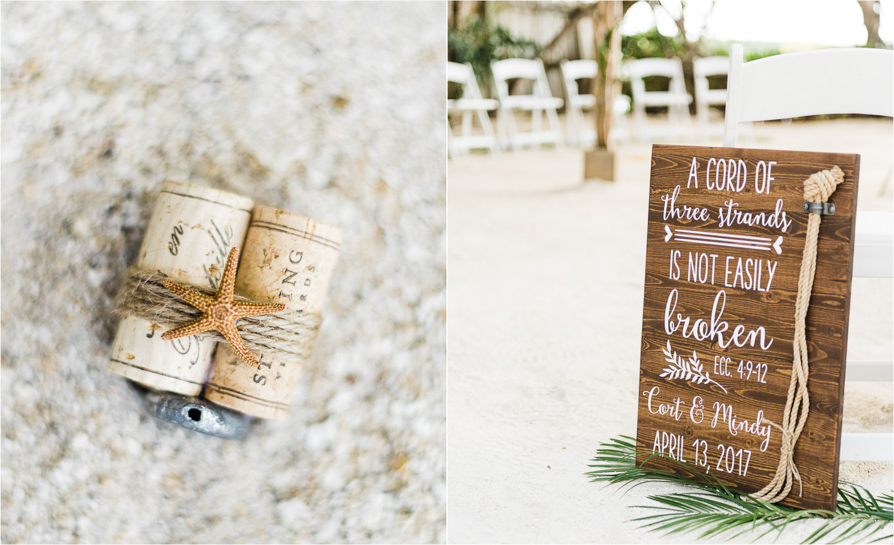 en
ING
ST
A CORD OF
three strands
IS NOT EASILY
broken
ECC. 4:9-12
Cort & Mindy
APRIL 13, 2017